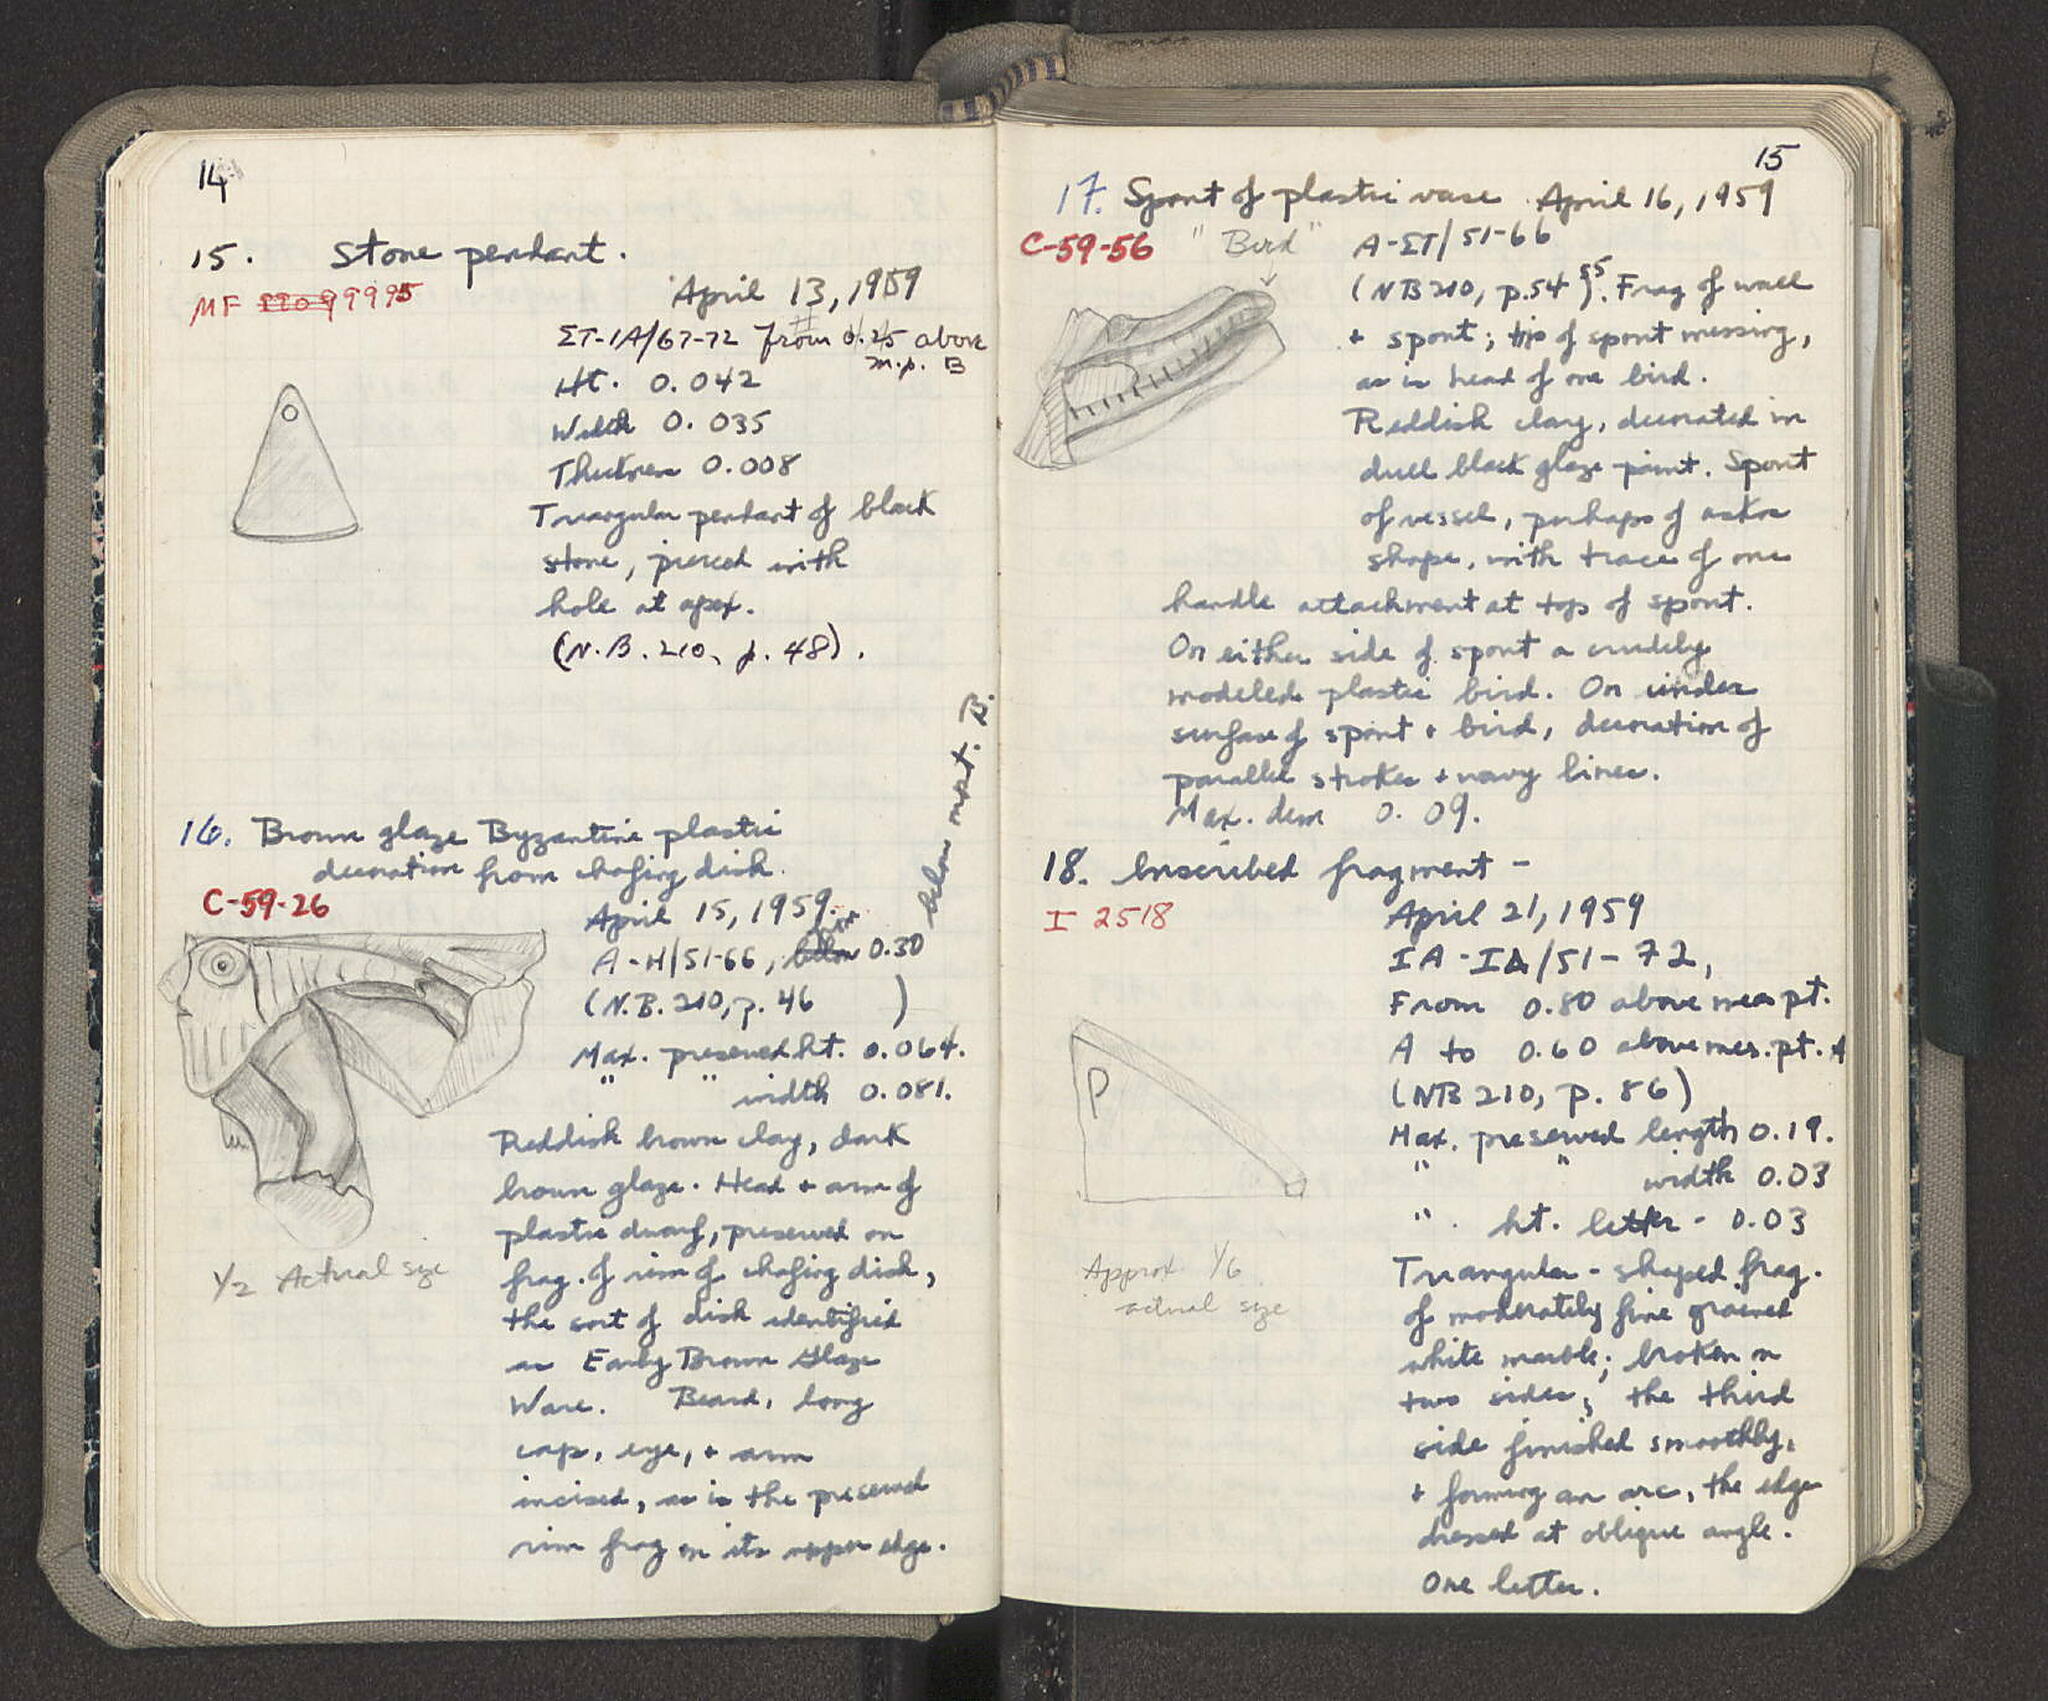 14
15. Stone pendant.
MF 9995
April 13, 1959
ΣΤ-1A/67-72 From 0.25 above
m.p. B
Ht. 0.042
Width 0.035
Thickness 0.008
Triangular pendant of black
stone, pierced with
hole at apex.
(N.B. 210, p. 48).
16. Brown glaze Byzantine plastic
decoration from chafing dish.
C-59-26
April 15, 1959.
A-H/51-66, 0.30
below mpt. B.
(N.B. 210, p. 46 )
Max. preserved ht. 0.064.
" " width 0.081.
Reddish brown clay, dark
brown glaze. Head + arm of
plastic dwarf, preserved on
frag. of rim of chafing dish,
the sort of dish identified
as Early Brown Glaze
Ware. Beard, long
cap, eye, + arm
incised, as is the preserved
rim frag on its upper edge.
1/2 Actual size
15
17. Spout of plastic vase April 16, 1959
C-59-56 "Bird" A-ΣΤ/51-66
(NB 210, p. 54 55). Frag of wall
+ spout; tip of spout missing,
as is head of one bird.
Reddish clay, decorated in
dull black glaze-paint. Spout
of vessel, perhaps of askos
shape, with trace of one
handle attachment at top of spout.
On either side of spout a crudely
modeled plastic bird. On under
surface of spout + bird, decoration of
parallel strokes + wavy lines.
Max. dim 0.09.
18. Inscribed fragment -
I 2518
April 21, 1959
IA-IΔ/51-72,
From 0.80 above meas pt.
A to 0.60 above mes. pt. A
(NB 210, p. 86)
Max. preserved length 0.19.
" " width 0.03
" ht. letter - 0.03
Triangular-shaped frag.
of moderately fine grained
white marble; broken on
two sides; the third
side finished smoothly,
+ forming an arc, the edge
dressed at oblique angle.
One letter.
P
Approx. 1/6
actual size